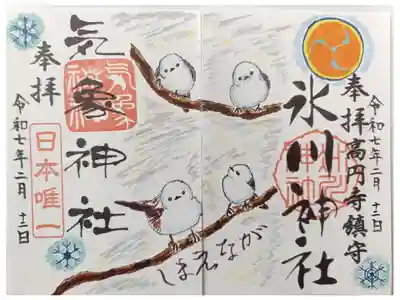 令和七年二月十二日
奉拝 高円寺鎮守
氷川神社
しまえなが
気象神社
奉拝
日本唯一
令和七年二月十二日